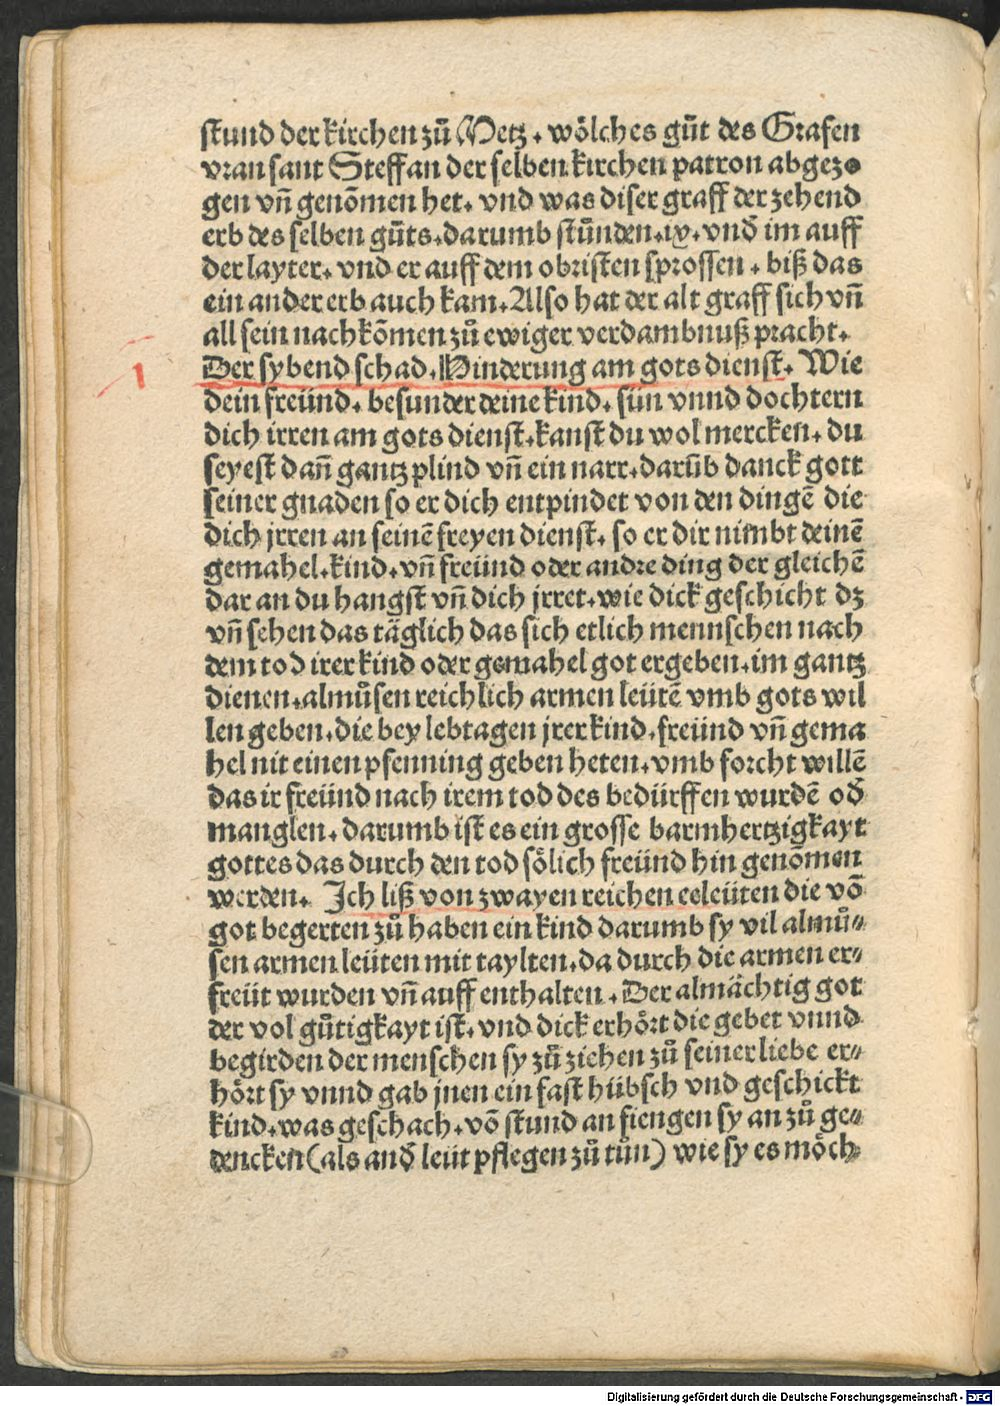 stund der kirchen zů Metz. wölches gůt des Grafen
vran sant Steffan der selben kirchen patron abgezo
gen vñ genōmen het. vnd was diser graff der zehend
erb des selben gůts. darumb stůnden. ix. vnd̄ im auff
der layter. vnd er auff dem obristen sprossen. biß das
ein ander erb auch kam. Also hat der alt graff sich vñ
all sein nachkōmen zů ewiger verdambnuß pracht.
Der sybend schad. Hinderung am gots dienst. Wie
dein freünd. besunder deine kind. sün vnnd dochtern
dich irren am gots dienst. kanst du wol mercken. du
seyest dañ gantz plind vñ ein narr. darūb danck gott
seiner gnaden so er dich entpindet von den dingē die
dich jrren an seinē freyen dienst. so er dir nimbt deinē
gemahel. kind. vñ freünd oder andre ding der gleichē
dar an du hangst vñ dich jrret. wie dick geschicht dz
vñ sehen das täglich das sich etlich mennschen nach
dem tod irer kind oder gemahel got ergeben. im gantz
dienen. almůsen reichlich armen leütē vmb gots wil
len geben. die bey lebtagen jrer kind. freünd vñ gema
hel nit einen pfenning geben heten. vmb forcht willē
das ir freünd nach irem tod des bedürffen wurdē od̄
manglen. darumb ist es ein grosse barmhertzigkayt
gottes das durch den tod sölich freünd hin genōmen
werden. Ich liß von zwayen reichen eeleüten die vō
got begerten zů haben ein kind darumb sy vil almů⸗
sen armen leüten mit taylten. da durch die armen er⸗
freüt wurden vñ auff enthalten. Der almächtig got
der vol gůtigkayt ist. vnd dick erhört die gebet vnnd
begirden der menschen sy zů ziehen zů seiner liebe er⸗
hört sy vnnd gab jnen ein fast hübsch vnd geschickt
kind. was geschach. vō stund an fiengen sy an zů ge⸗
dencken (als and̄ leüt pflegen zů tůn) wie sy es möch
1
Digitalisierung gefördert durch die Deutsche Forschungsgemeinschaft - DFG